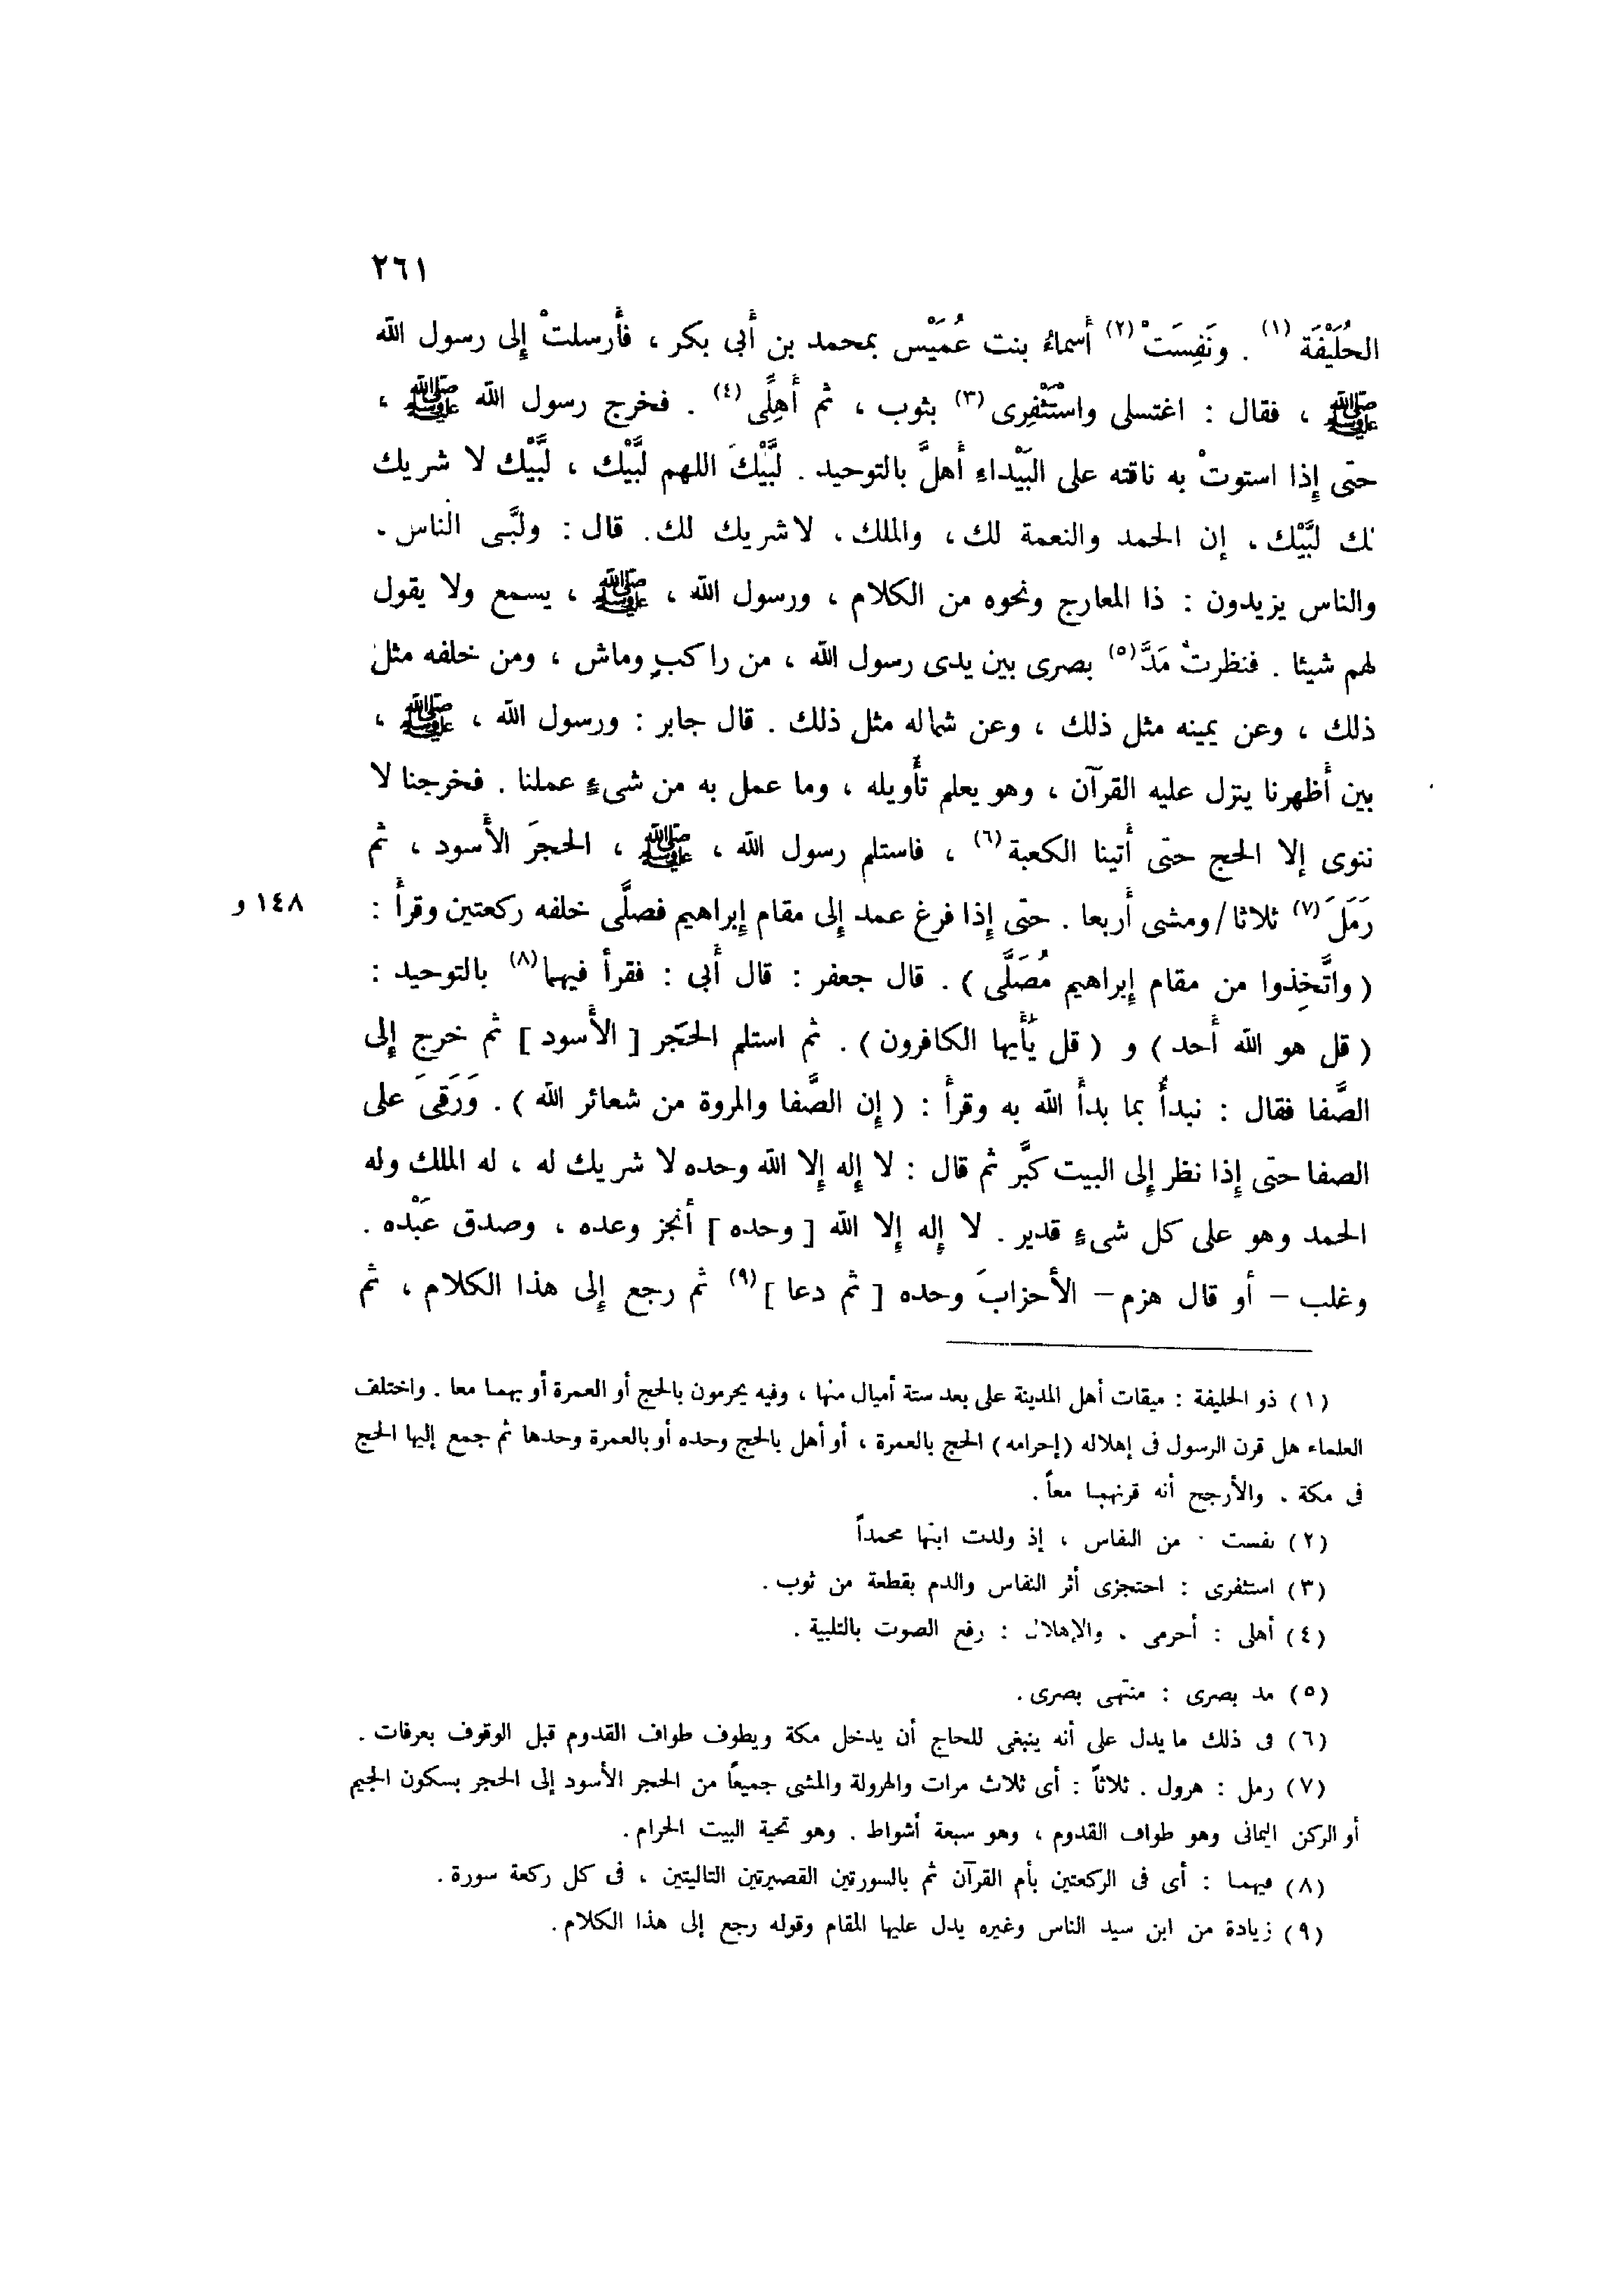 ٢٦١
الحُلَيْفَة (١) . ونَفِسَتْ (٢) أَسماءُ بنت عُمَيْس بمحمد بن أَبى بكر ، فأَرسلتْ إِلى رسول الله
ﷺ ، فقال : اغتسلى واسْتَثْفِرِى (٣) بثوب ، ثم أَهِلِّى (٤) . فخرج رسول الله ﷺ ،
حتى إِذا استوتْ به ناقته على البَيْداءِ أَهلَّ بالتوحيد . لبَّيْكَ اللهم لبَّيْك ، لبَّيْك لا شريك
لك لبَّيْك ، إن الحمد والنعمة لك ، والملك ، لا شريك لك . قال : ولبَّى الناس .
والناس يزيدون : ذا المعارج ونحوه من الكلام ، ورسول الله ، ﷺ ، يسمع ولا يقول
لهم شيئا . فنظرتُ مَدَّ (٥) بصرى بين يدى رسول الله ، من راكبٍ وماش ، ومن خلفه مثل
ذلك ، وعن يمينه مثل ذلك ، وعن شماله مثل ذلك . قال جابر : ورسول الله ، ﷺ ،
بين أَظهرنا ينزل عليه القرآن ، وهو يعلم تأْويله ، وما عمل به من شىءٍ عملنا . فخرجنا لا
ننوى إلا الحج حتى أَتينا الكعبة (٦) ، فاستلم رسول الله ، ﷺ ، الحجرَ الأَسود ، ثم
رَمَلَ (٧) ثلاثا / ومشى أَربعا . حتى إِذا فرغ عمد إِلى مقام إِبراهيم فصلَّى خلفه ركعتين وقرأَ :
١٤٨ و
( واتَّخِذوا من مقام إِبراهيم مُصَلَّى ) . قال جعفر : قال أَبى : فقرأ فيهما (٨) بالتوحيد :
( قل هو الله أَحد ) و ( قل يٰأَيها الكافرون ) . ثم استلم الحَجَر [ الأَسود ] ثم خرج إِلى
الصَّفا فقال : نبدأُ بما بدأَ الله به وقرأَ : ( إِن الصَّفا والمروة من شعائر الله ) . وَرَقِىَ على
الصفا حتى إِذا نظر إِلى البيت كبَّر ثم قال : لا إِله إِلا الله وحده لا شريك له ، له الملك وله
الحمد وهو على كل شىءٍ قدير . لا إِله إِلا الله [ وحده ] أنجز وعده ، وصدق عَبْده .
وغلب – أو قال هزم – الأحزابَ وحده [ ثم دعا ] (٩) ثم رجع إِلى هذا الكلام ، ثم
(١) ذو الحليفة : ميقات أهل المدينة على بعد ستة أميال منها ، وفيه يحرمون بالحج أو العمرة أو بهما معا . واختلف
العلماء هل قرن الرسول فى إهلاله (إحرامه) الحج بالعمرة ، أو أهل بالحج وحده أو بالعمرة وحدها ثم جمع إليها الحج
فى مكة . والأرجح أنه قرنهما معاً .
(٢) نفست : من النفاس ، إذ ولدت ابنها محمداً
(٣) استثفرى : احتجزى أثر النفاس والدم بقطعة من ثوب .
(٤) أهلى : أحرمى . والإهلال : رفع الصوت بالتلبية .
(٥) مد بصرى : منتهى بصرى .
(٦) فى ذلك ما يدل على أنه ينبغى للحاج أن يدخل مكة ويطوف طواف القدوم قبل الوقوف بعرفات .
(٧) رمل : هرول . ثلاثاً : أى ثلاث مرات والهرولة والمشى جميعاً من الحجر الأسود إلى الحجر بسكون الجيم
أو الركن اليمانى وهو طواف القدوم ، وهو سبعة أشواط . وهو تحية البيت الحرام .
(٨) فيهما : أى فى الركعتين بأم القرآن ثم بالسورتين القصيرتين التاليتين ، فى كل ركعة سورة .
(٩) زيادة من ابن سيد الناس وغيره يدل عليها المقام وقوله رجع إلى هذا الكلام .